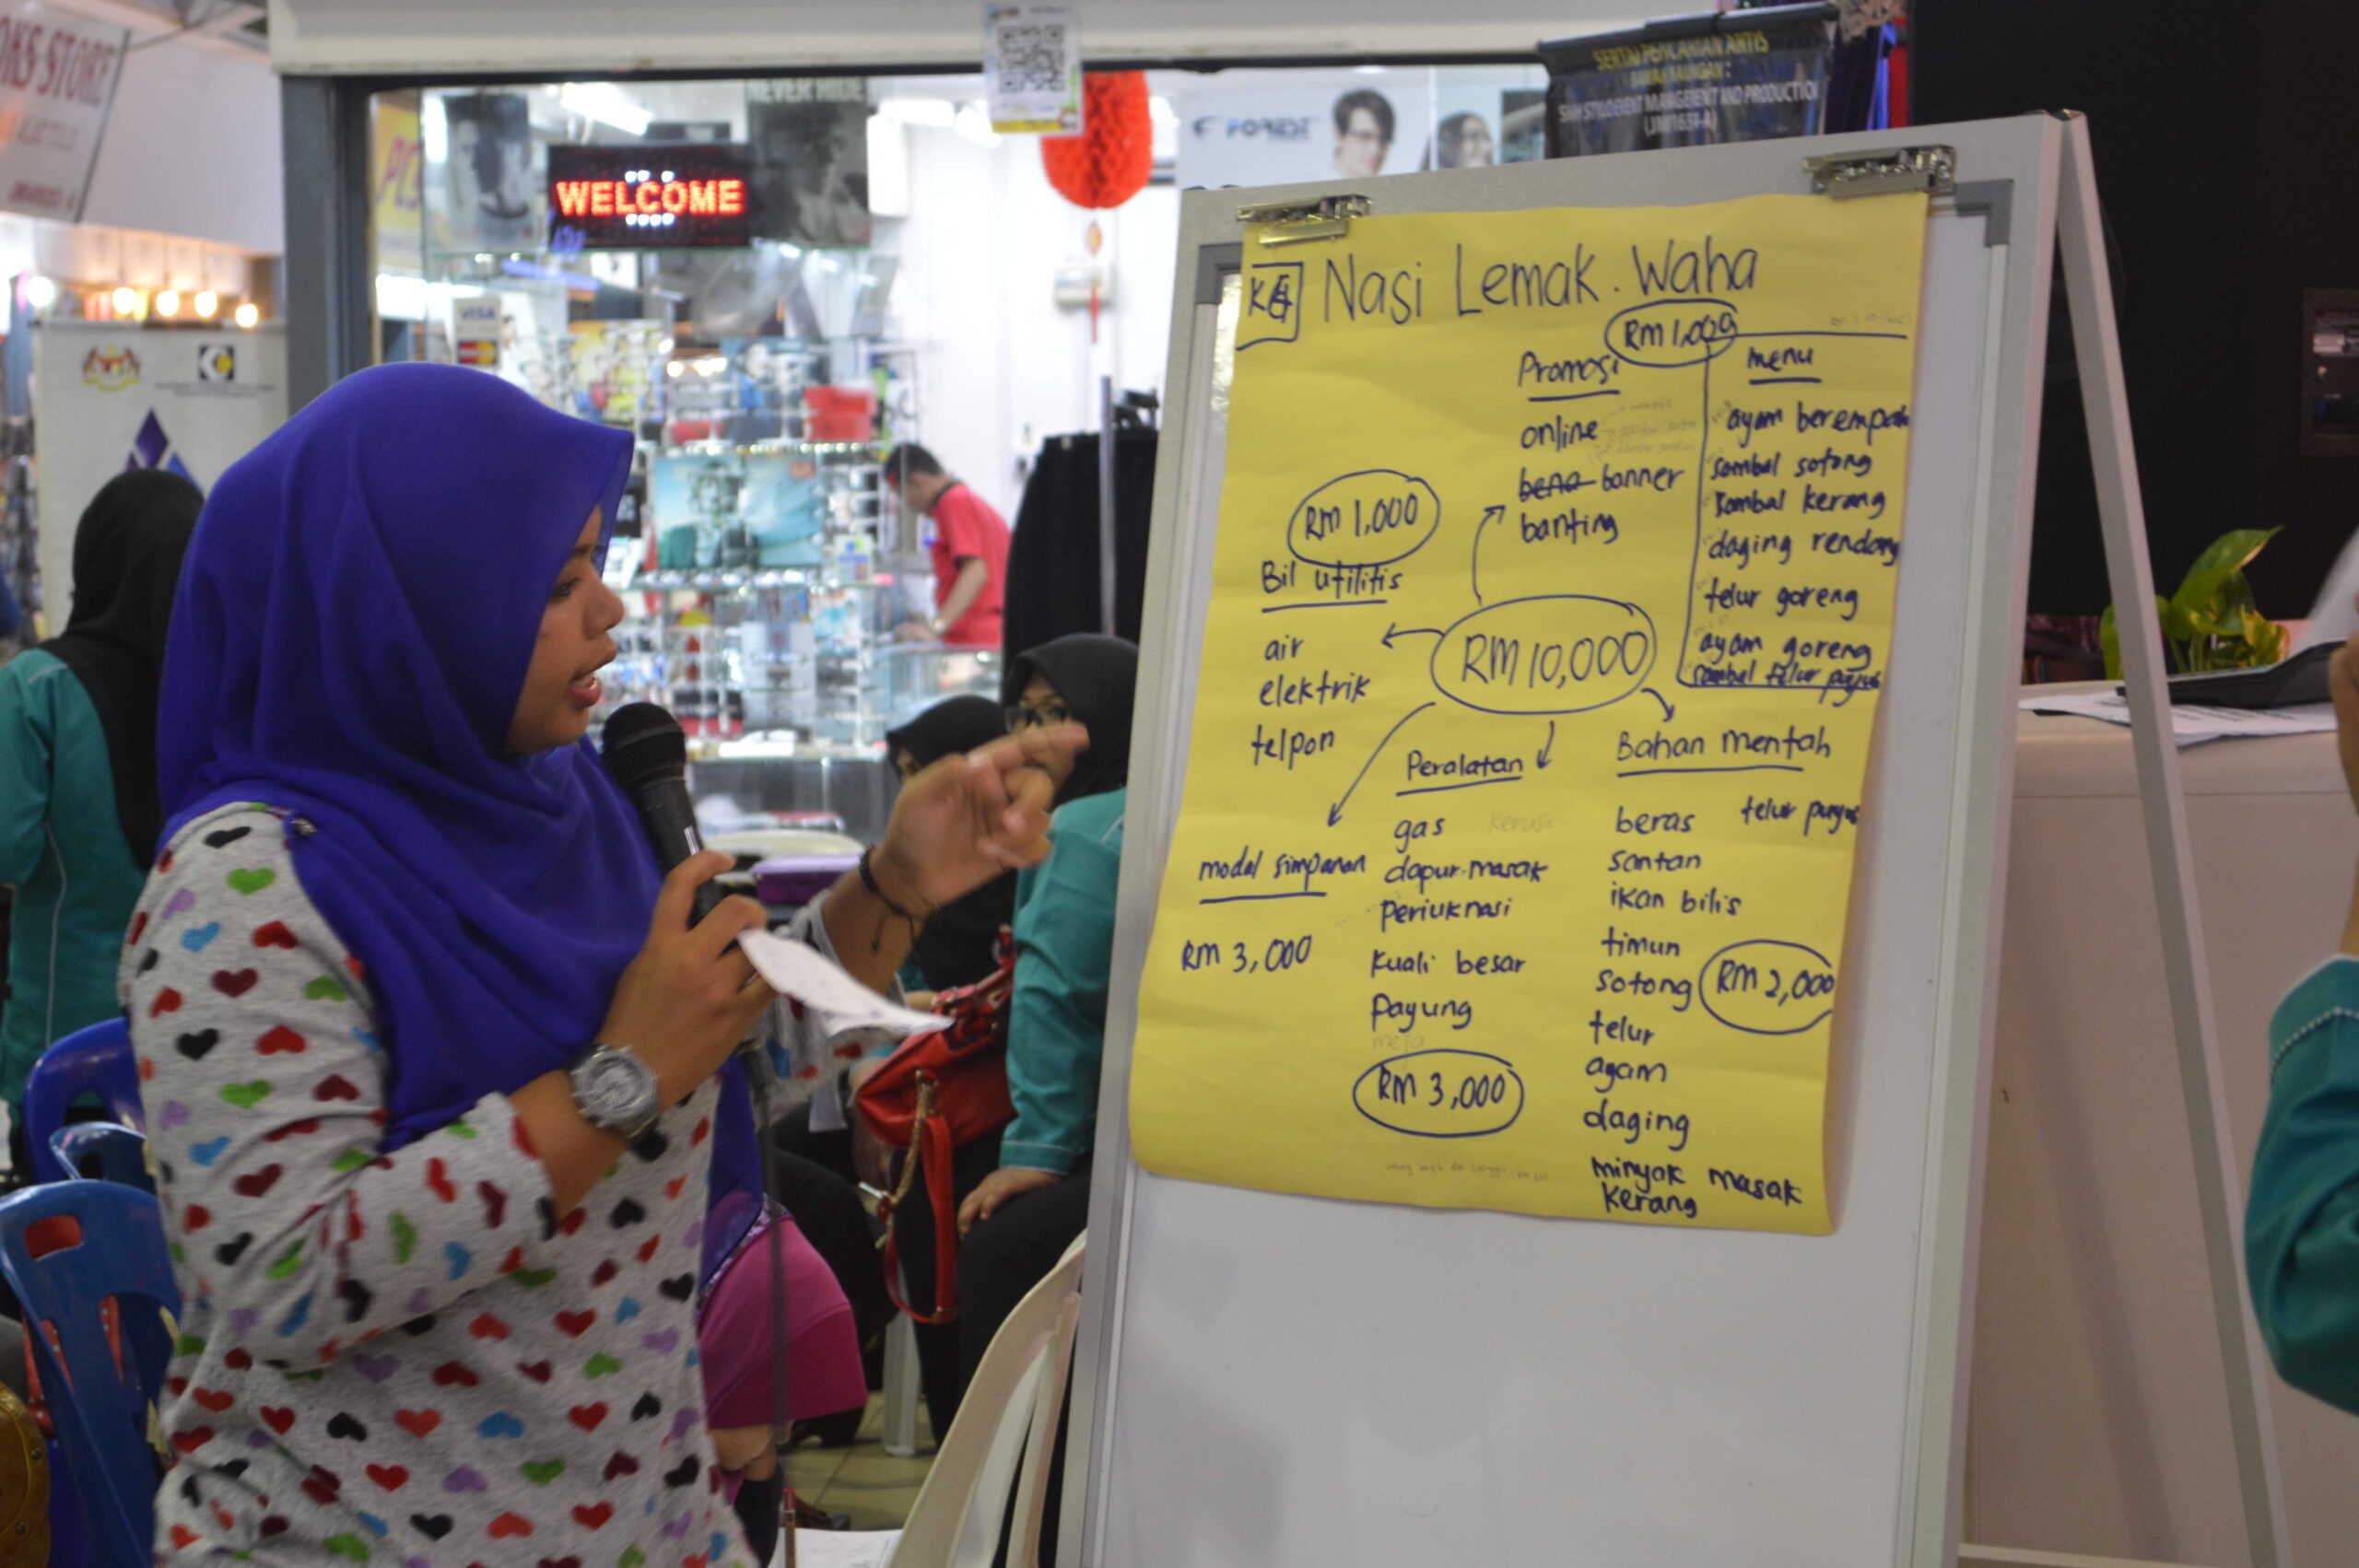 OKS STORE
WELCOME
NEVER HIDE
VISA
FOREST
SERTAI PENCARIAN ARTIS
BAWAH NAUNGAN :
K4 Nasi Lemak . Waha
RM 1,000
Promosi
online
bena banner
banting
menu
ayam berempah
sambal sotong
sambal kerang
daging rendang
telur goreng
ayam goreng
sambal telur puyuh
RM 1,000
Bil utilitis
air
elektrik
telpon
RM 10,000
modal simpanan
RM 3,000
Peralatan
gas kerusi
dapur masak
periuk nasi
kuali besar
payung
meja
RM 3,000
Bahan mentah
beras telur puyuh
santan
ikan bilis
timun
sotong
RM 2,000
telur
ayam
daging
minyak masak
kerang